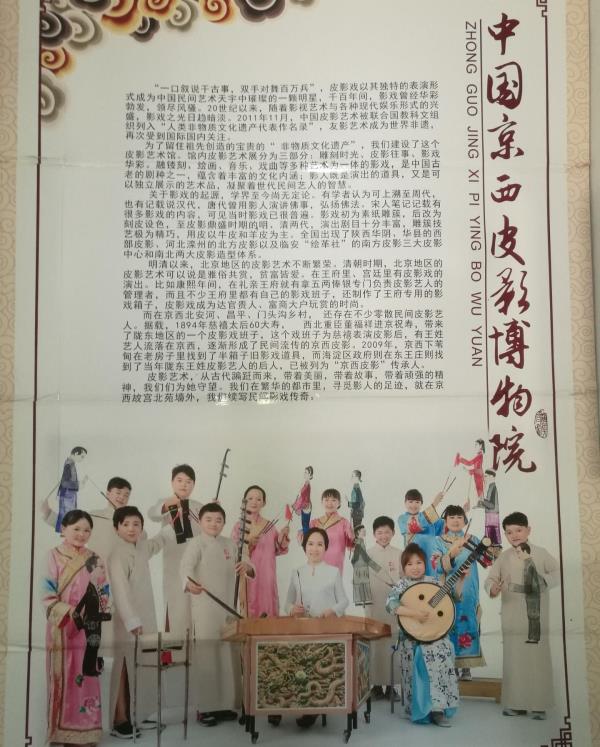 中国京西皮影博物院
ZHONG GUO JING XI PI YING BO WU YUAN
“一口叙说千古事，双手对舞百万兵”，皮影戏以其独特的表演形
式成为中国民间艺术天宇中璀璨的一颗明星，千百年间，影戏曾经华彩
勃发，领尽风骚。20世纪以来，随着影视艺术与各种现代娱乐形式的兴
盛，影戏之光日趋暗淡。2011年11月，中国皮影艺术被联合国教科文组
织列入“人类非物质文化遗产代表作名录”，友影艺术成为世界非遗，
再次受到国际国内关注。
为了留住祖先创造的宝贵的“非物质文化遗产”，我们建设了这个
皮影艺术馆。馆内皮影艺术展分为三部分：雕刻时光、皮影往事、影戏
华彩。融镂刻、绘画、音乐、戏曲等多种艺术为一体的影戏，是中国古
老的剧种之一，蕴含着丰富的文化内涵；影人既是演出的道具，又是可
以独立展示的艺术品，凝聚着世代民间艺人的智慧。
关于影戏的起源，学界至今尚无定论。有学者认为可上溯至周代，
也有记载说汉代，唐代曾用影人演讲佛事，弘扬佛法。宋人笔记记载有
很多影戏的内容，可见当时影戏已很普遍。影戏初为素纸雕簇，后改为
刻皮设色，至皮影鼎盛时期的明、清两代，演出剧目十分丰富，雕簇技
艺极为精巧，用皮以牛皮和羊皮为主。全国出现了陕西华阴，华县的西
部皮影、河北滦州的北方皮影以及临安“绘革社”的南方皮影三大皮影
中心和南北两大皮影造型体系。
明清以来，北京地区的皮影艺术不断繁荣。清朝时期，北京地区的
皮影艺术可以说是雅俗共赏，贫富皆爱。在王府里、宫廷里有皮影戏的
演出。比如康熙年间，在礼亲王府就有拿五两俸银专门负责皮影艺人的
管理者，而且不少王府里都有自己的影戏班子，还制作了王府专用的影
戏箱子，皮影戏成为达官贵人、富商大户玩赏的时尚。
而在京西北安河、昌平、门头沟乡村，还存在不少零散民间皮影艺
人。据载，1894年慈禧太后60大寿，西北重臣董福祥进京祝寿，带来
了陇东地区的一个皮影戏班子，这个戏班子为慈禧表演皮影后，有王姓
艺人流落在京西，逐渐形成了民间流传的京西皮影。2009年，京西下苇
甸在老房子里找到了半箱子旧影戏道具，而海淀区政府则在东王庄则找
到了当年陇东王姓皮影艺人的后人，已被列为“京西皮影”传承人。
皮影艺术，从古代蹁跹而来，带着美丽，带着故事，带着顽强的精
神，我们们为她守望。我们在繁华的都市里，寻觅影人的足迹，就在京
西故宫北苑墙外，我们续写民间影戏传奇。